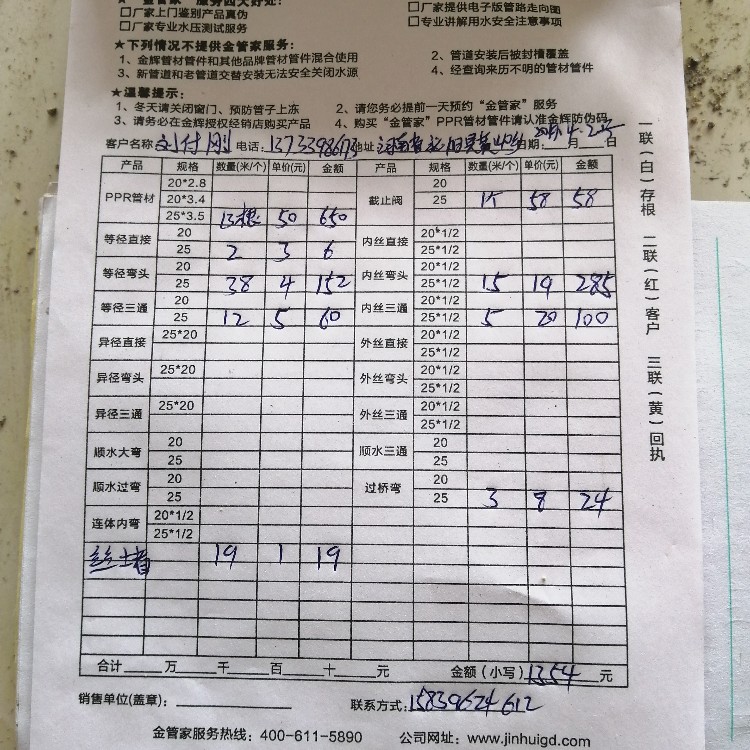 ★"金管家"服务四大好处:
□厂家上门鉴别产品真伪 □厂家提供电子版管路走向图
□厂家专业水压测试服务 □专业讲解用水安全注意事项
★下列情况不提供金管家服务:
1、金辉管材管件和其他品牌管材管件混合使用 2、管道安装后被封槽覆盖
3、新管道和老管道交替安装无法安全关闭水源 4、经查询来历不明的管材管件
★温馨提示:
1、冬天请关闭窗门、预防管子上冻 2、请您务必提前一天预约"金管家"服务
3、请务必在金辉授权经销店购买产品 4、购买"金管家"PPR管材管件请认准金辉防伪码
客户名称 刘付刚 电话: 地址: 日期: 月 日
产品 规格 数量(米/个) 单价(元) 金额 产品 规格 数量(米/个) 单价(元) 金额
PPR管材 20*2.8 截止阀 20
20*3.4 25 58 58
25*3.5 13根 50 650
等径直接 20 内丝直接 20*1/2
25 2 3 6 25*1/2
等径弯头 20 内丝弯头 20*1/2
25 38 4 152 25*1/2 15 19 285
等径三通 20 内丝三通 20*1/2
25 12 5 60 25*1/2 5 20 100
异径直接 25*20 外丝直接 20*1/2
25*1/2
异径弯头 25*20 外丝弯头 20*1/2
25*1/2
异径三通 25*20 外丝三通 20*1/2
25*1/2
顺水大弯 20 顺水三通 20
25 25
顺水过弯 20 过桥弯 20
25 25 3 8 24
连体内弯 20*1/2
25*1/2
丝堵 19 1 19
合计 万 千 百 十 元 金额(小写) 1354 元
销售单位(盖章): 联系方式: 15839624612
金管家服务热线: 400-611-5890 公司网址: www.jinhuigd.com
一联(白)存根 二联(红)客户 三联(黄)回执